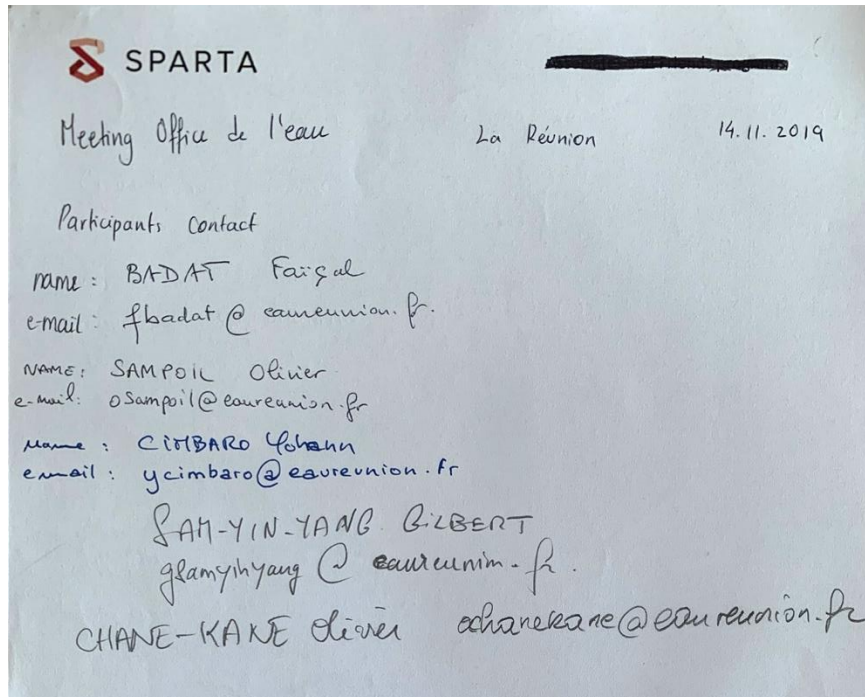 SPARTA
Meeting Office de l'eau La Réunion 14.11.2019
Participants Contact
name: BADAT Faïçal
e-mail: fbadat@eaureunion.fr.
NAME: SAMPOIL Olivier
e-mail: osampoil@eaureunion.fr
Name: CIMBARO Yohann
email: ycimbaro@eaureunion.fr
SAM-YIN-YANG GILBERT
gsamyinyang@eaureunion.fr.
CHANE-KANE Olivier ochanekane@eaureunion.fr